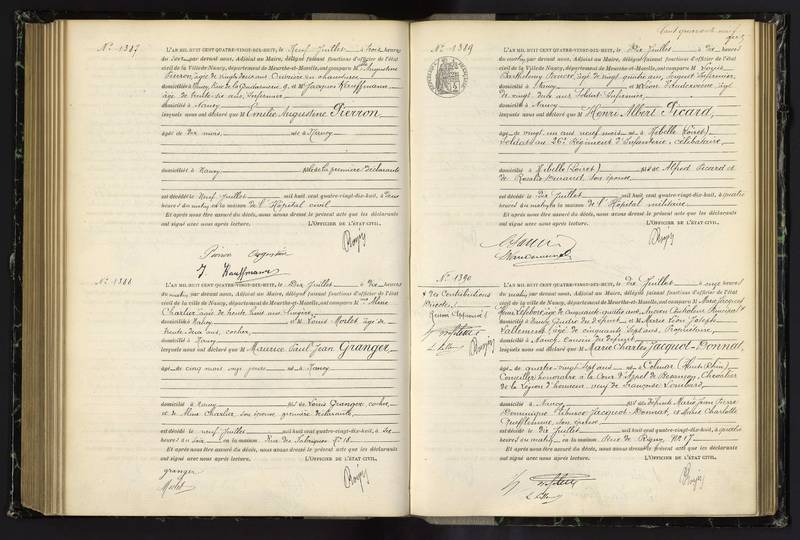 Nº 1387
L'AN MIL HUIT CENT QUATRE-VINGT-DIX-HUIT, le Neuf Juillet à trois heures
du Soir par devant nous, Adjoint au Maire, délégué faisant fonctions d'officier de l'état
civil de la Ville de Nancy, département de Meurthe-et-Moselle, ont comparu Augustine
Pierron, âgée de vingt deux ans
domiciliée à Nancy, Rue de la 9, et M Jacques Kauffmann
âgé de trente-six ans, Infirmier
domicilié à Nancy
lesquels nous ont déclaré que Emilie Augustine Pierron,
âgée de dix mois, née à Nancy
domiciliée à Nancy de la première déclarante
est décédée le Neuf Juillet mil huit cent quatre-vingt-dix-huit, à
heures du en la maison de l'Hôpital civil
Et après nous être assuré du décès, nous avons dressé le présent acte que les déclarants
ont signé avec nous après lecture. L'OFFICIER DE L'ÉTAT CIVIL,
Pierron Augustine
J. Kauffmann
Nº 1388
L'AN MIL HUIT CENT QUATRE-VINGT-DIX-HUIT, le Dix Juillet à dix heures
du matin par devant nous, Adjoint au Maire, délégué faisant fonctions d'officier de l'état
civil de la ville de Nancy, département de Meurthe-et-Moselle, ont comparu Marie
Charlier, âgée de trente huit ans, lingère
domiciliée à Nancy et M Louis Morlot, âgé de
trente deux ans, cocher,
domicilié à Nancy
lesquels nous ont déclaré que Maurice Paul Jean Granger,
âgé de cinq mois onze jours né à Nancy
domicilié à Nancy fils de Louis Granger, cocher,
et de Marie Charlier, son épouse, première déclarante,
est décédé le neuf Juillet mil huit cent quatre-vingt-dix-huit, à six
heures du soir en la maison Rue des Fabriques Nº 18
Et après nous être assuré du décès, nous avons dressé le présent acte que les déclarants
ont signé avec nous après lecture. L'OFFICIER DE L'ÉTAT CIVIL,
granger
Morlot
Nº 1389
L'AN MIL HUIT CENT QUATRE-VINGT-DIX-HUIT, le Dix Juillet à dix heures
du matin, par devant nous, Adjoint au Maire, délégué faisant fonctions d'officier de l'état
civil de la Ville de Nancy, département de Meurthe-et-Moselle, ont comparu M Louis
Barthelemy, âgé de vingt quatre ans, Sergent Infirmier,
domicilié à Nancy et M Léon Vandevenne, âgé
de vingt deux ans Soldat Infirmier,
domicilié à Nancy
lesquels nous ont déclaré que Henri Albert Picard,
âgé de vingt un ans neuf mois né à Nibelle (Loiret)
Soldat au 26e Régiment d'Infanterie, célibataire,
domicilié à Nibelle (Loiret) fils de Alfred Picard et
de Rosalie Durand, son épouse
est décédé le Dix Juillet mil huit cent quatre-vingt-dix-huit, à quatre
heures du matin en la maison de l'Hôpital militaire
Et après nous être assuré du décès, nous avons dressé le présent acte que les déclarants
ont signé avec nous après lecture. L'OFFICIER DE L'ÉTAT CIVIL,
Nº 1390
L'AN MIL HUIT CENT QUATRE-VINGT-DIX-HUIT, le Dix Juillet à onze heures
du matin par devant nous, Adjoint au Maire, délégué faisant fonctions d'officier de l'état
civil de la ville de Nancy, département de Meurthe-et-Moselle, ont comparu M Marie Jacques
Henri Lefebvre, âgé de cinquante quatre ans, Ancien Principal
domicilié à Neveu du Défunt et M Marie Léon Joseph
âgé de cinquante sept ans, Propriétaire,
domicilié à Nancy, Cousin du Défunt
lesquels nous ont déclaré que Marie Charles Jacquot-Donnat,
âgé de quatre-vingt sept ans né à Colmar (Haut-Rhin)
Conseiller honoraire à la Cour d'Appel de Besançon, Chevalier
de la Légion d'honneur, veuf de Françoise Lombard,
domicilié à Nancy fils de Défunts Marie Jean Pierre
Dominique Jacquot-Donnat, et Marie Charlotte
son épouse
est décédé le Dix Juillet mil huit cent quatre-vingt-dix-huit, à quatre
heures du matin en la maison Rue de Rigny, Nº 17
Et après nous être assuré du décès, nous avons dressé le présent acte que les déclarants
ont signé avec nous après lecture. L'OFFICIER DE L'ÉTAT CIVIL,
* des Contributions